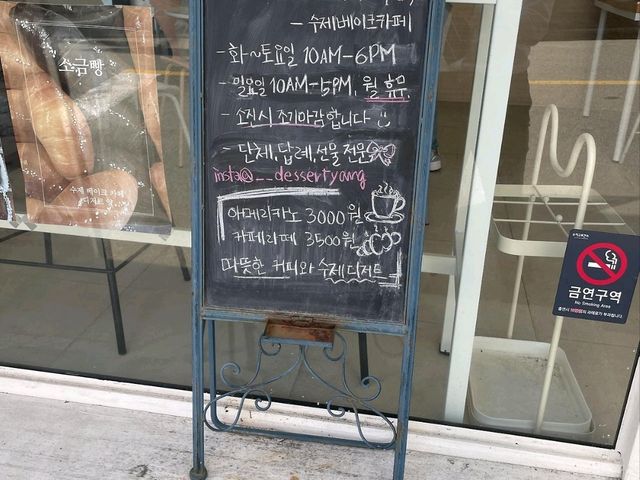 - 수제베이크카페
- 화~토요일 10AM-6PM
- 일요일 10AM-5PM, 월 휴무,
- 소진시 조기마감합니다
- 단체, 답례, 선물 전문
insta@__dessertyang
아메리카노 3000원
카페라떼 3500원
따뜻한 커피와 수제디저트
소금빵
수제 베이크 카페
디저트 양
금연구역
No Smoking Area